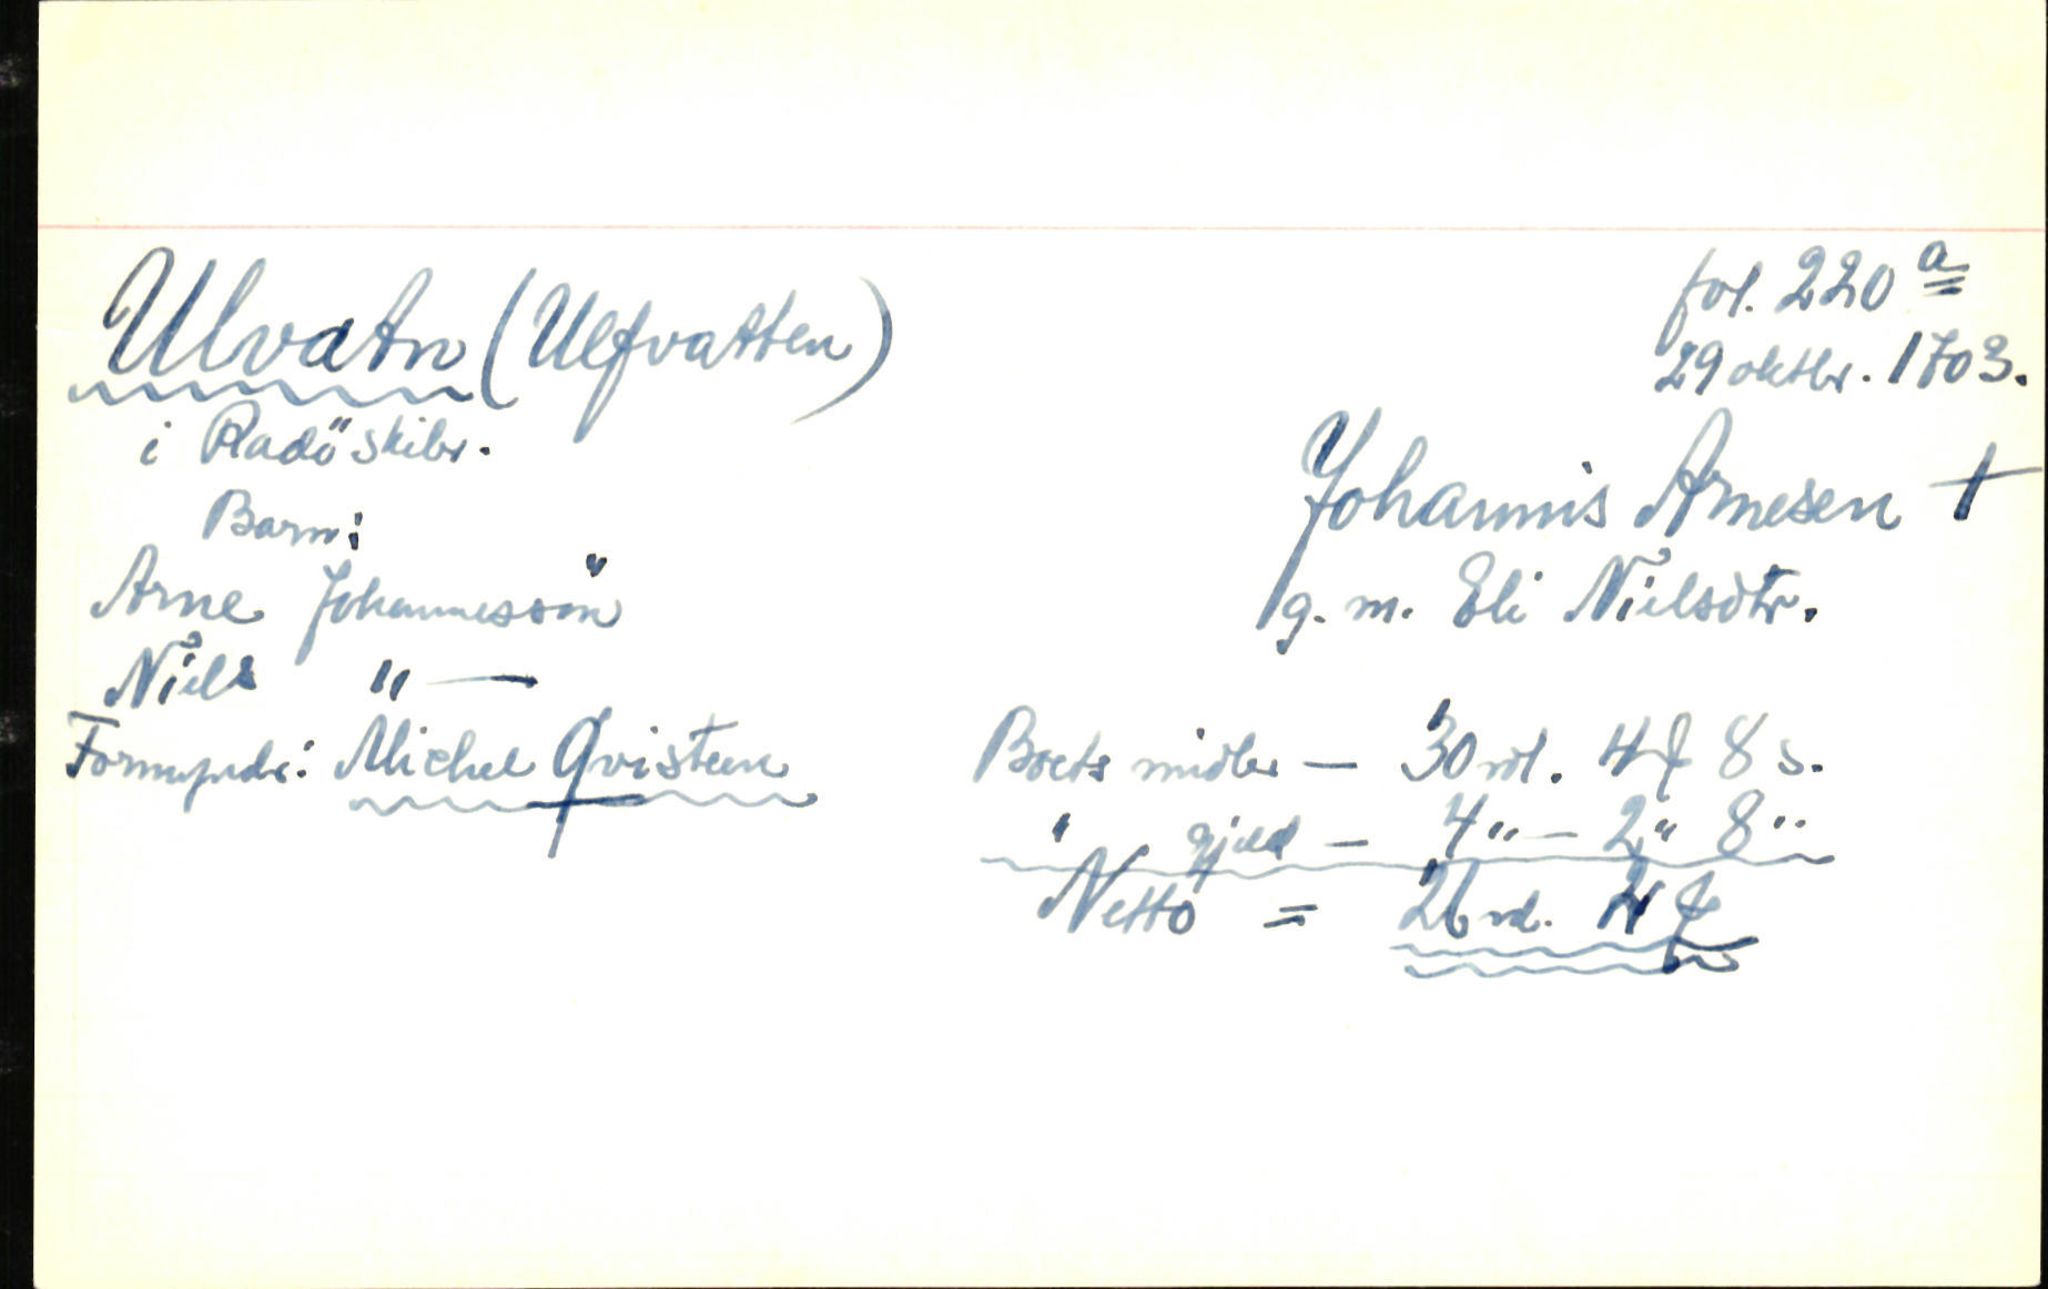 Ulvatn (Ulfvatten)
i Radöskibr.
Barn:
Arne Johannessön
Niels " —
Formyndr: Michel Qvisteen
fol. 220 a
29 oktbr. 1703.
Johannis Arnesen †
g. m. Eli Nielsdtr.
Boets midler — 30 rdl. 4 ₰ 8 s.
" gjeld — 4 " — 2 " 8 "
Netto = 26 rd. 2 ₰